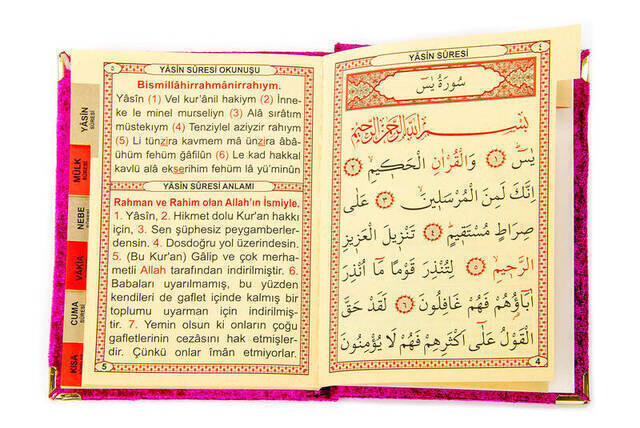 YÂSİN SÛRESİ OKUNUŞU
٥
Bismillâhirrahmânirrahıym.
Yâsîn (1) Vel kur'ânil hakiym (2) İnne-
ke le minel murseliyn (3) Alâ sırâtım
müstekıym (4) Tenziylel aziyzir rahıym
(5) Li tünzira kavmem mâ ünzira âbâ-
ühüm fehüm ğâfilûn (6) Le kad hakkal
kavlü alâ ekserihim fehüm lâ yü'minûn
YÂSİN SÛRESİ ANLAMI
Rahman ve Rahim olan Allah'ın İsmiyle.
1. Yâsîn, 2. Hikmet dolu Kur'an hakkı
için, 3. Sen şüphesiz peygamberler-
densin. 4. Dosdoğru yol üzerindesin.
5. (Bu Kur'an) Gâlip ve çok merha-
metli Allah tarafından indirilmiştir. 6.
Babaları uyarılmamış, bu yüzden
kendileri de gaflet içinde kalmış bir
toplumu uyarman için indirilmiş-
tir. 7. Yemin olsun ki onların çoğu
gafletlerinin cezâsını hak etmişler-
dir. Çünkü onlar îmân etmiyorlar.
5
YÂSİN
SÛRESİ
MÜLK
SÛRESİ
NEBE
SÛRESİ
VAKIA
CUMA
SÛRESİ
KISA
YÂSİN SÛRESİ
٤
سُورَةُ يٰسٓ
بِسْمِ اللّٰهِ الرَّحْمٰنِ الرَّحِيمِ
يٰسٓ ﴿١﴾ وَالْقُرْاٰنِ الْحَكِيمِۙ ﴿٢﴾
اِنَّكَ لَمِنَ الْمُرْسَلِينَۙ ﴿٣﴾ عَلٰى
صِرَاطٍ مُسْتَقِيمٍۜ ﴿٤﴾ تَنْزِيلَ الْعَزِيزِ
الرَّحِيمِۙ ﴿٥﴾ لِتُنْذِرَ قَوْمًا مَٓا اُنْذِرَ
اٰبَٓاؤُ۬هُمْ فَهُمْ غَافِلُونَ ﴿٦﴾ لَقَدْ حَقَّ
الْقَوْلُ عَلٰٓى اَكْثَرِهِمْ فَهُمْ لَا يُؤْمِنُونَ
4